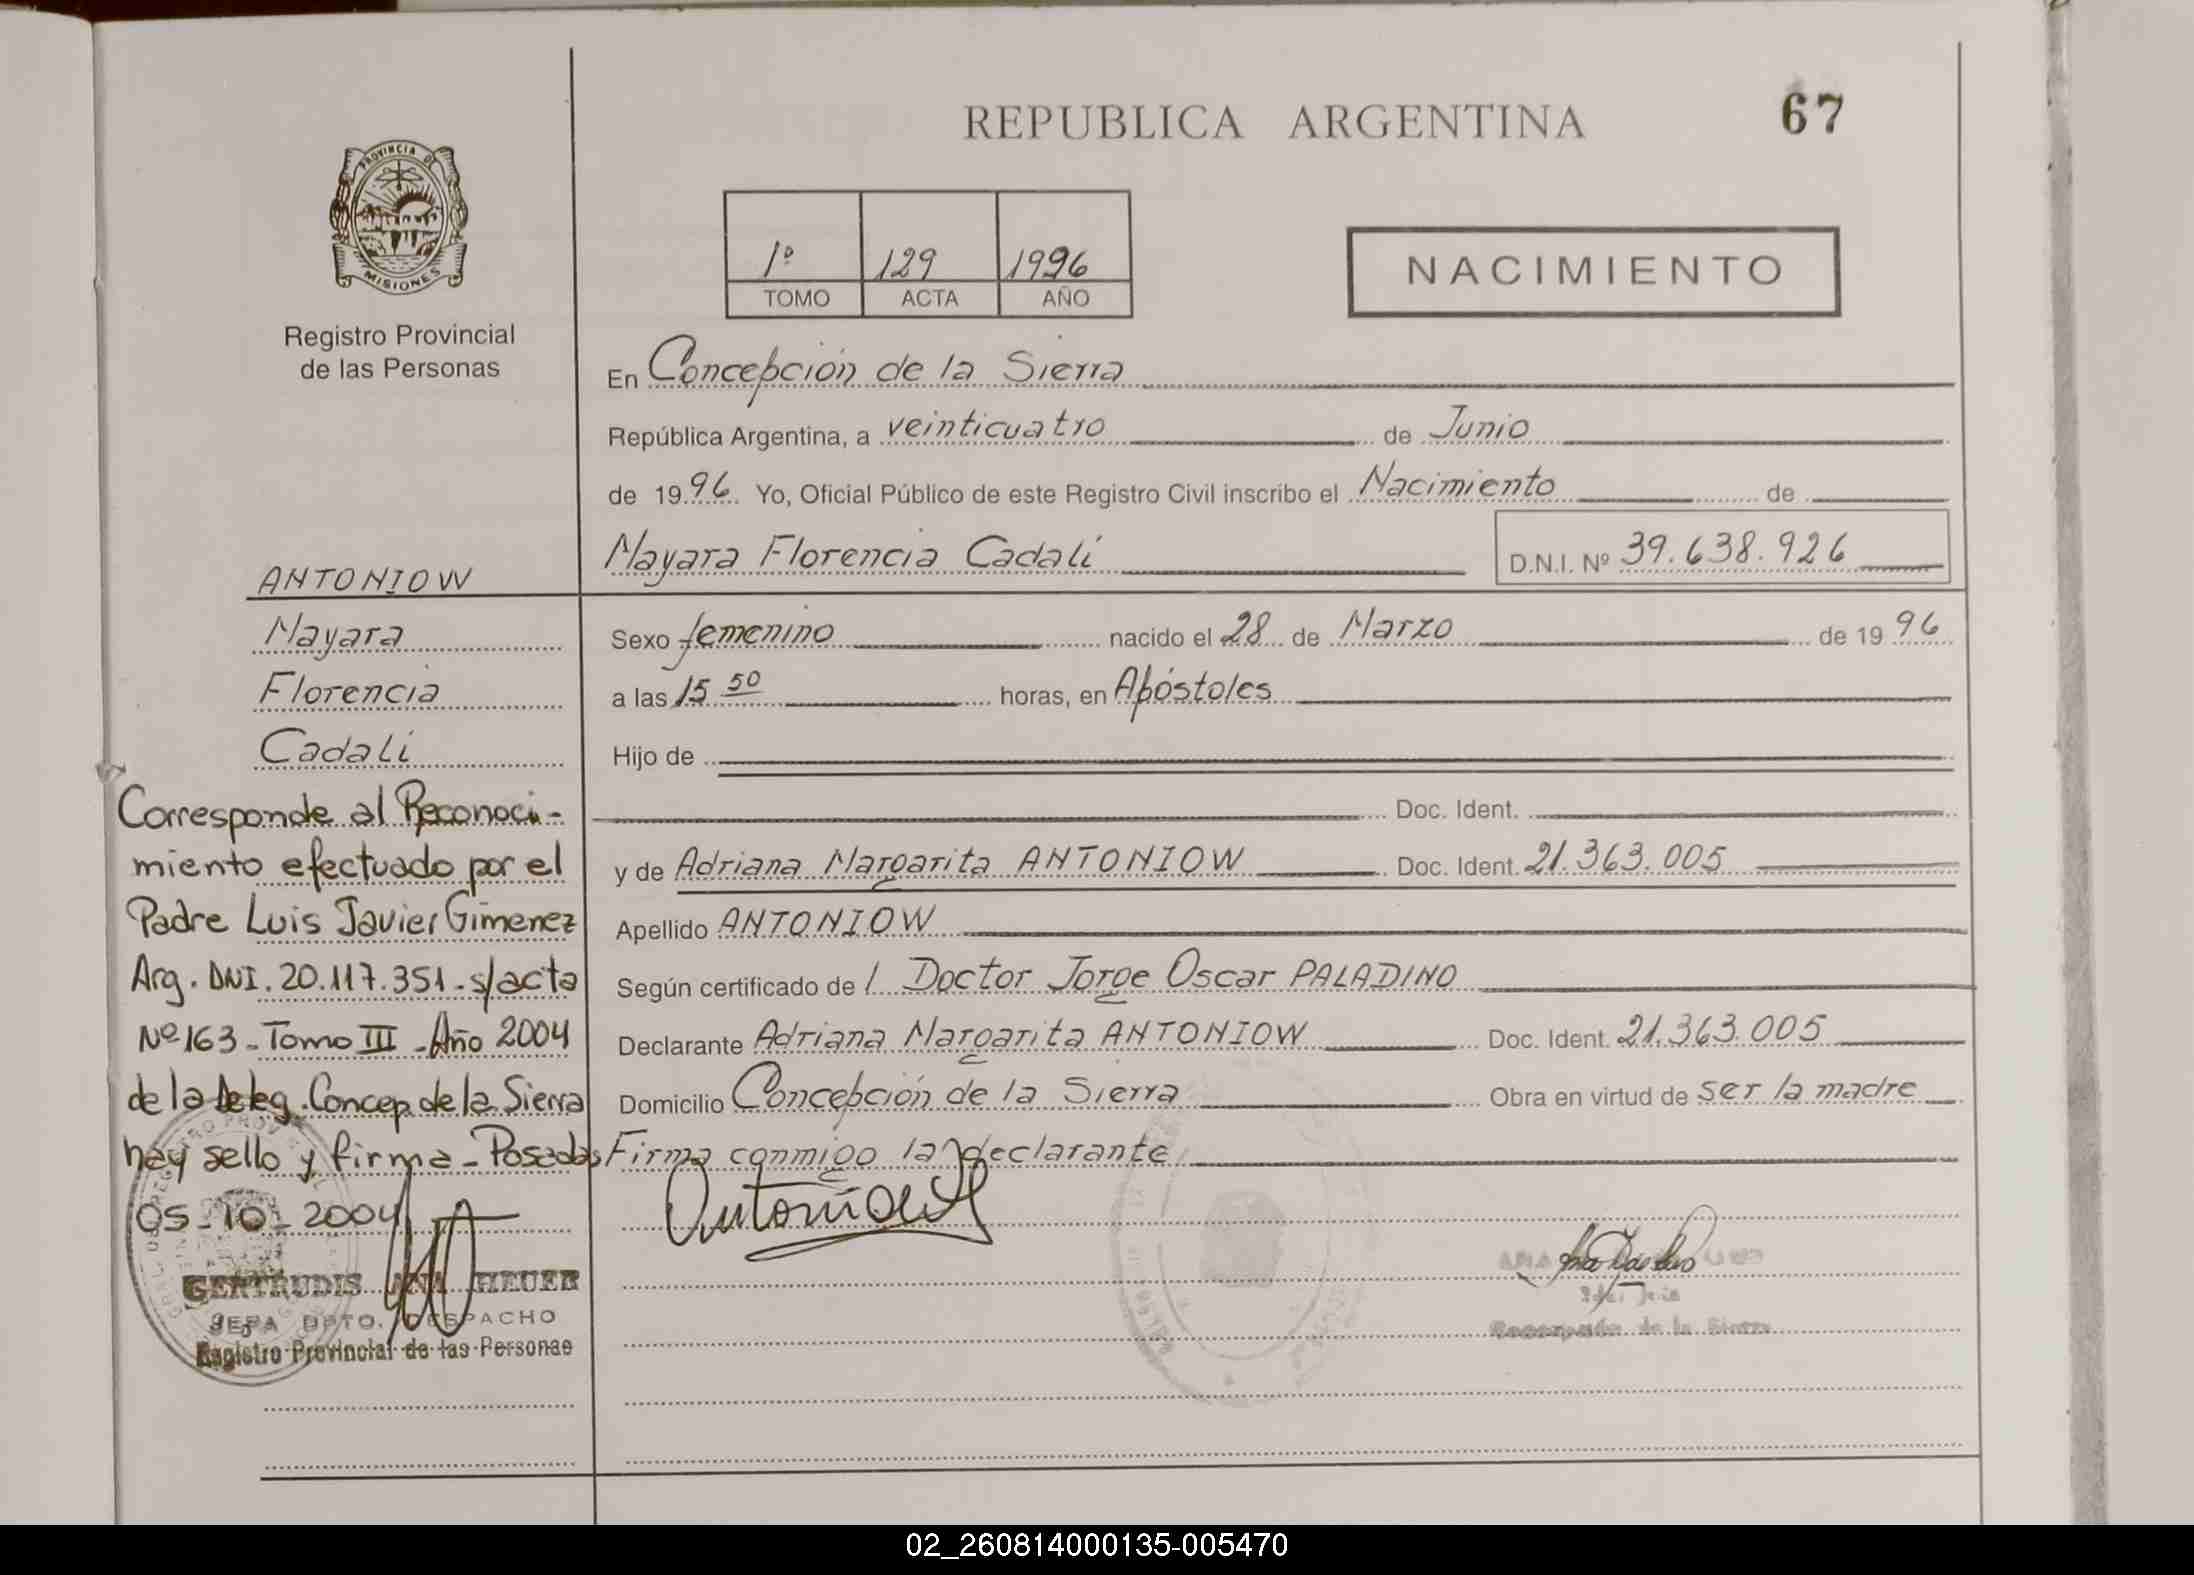 REPUBLICA ARGENTINA
67
PROVINCIA DE
MISIONES
Registro Provincial
de las Personas
1º 129 1996
TOMO ACTA AÑO
NACIMIENTO
En Concepción de la Sierra
República Argentina, a veinticuatro de Junio
de 1996. Yo, Oficial Público de este Registro Civil inscribo el Nacimiento de
Nayara Florencia Cadalí
D.N.I. Nº 39.638.926
Sexo femenino nacido el 28 de Marzo de 1996
a las 15 50 horas, en Apóstoles
Hijo de
Doc. Ident.
y de Adriana Margarita ANTONIOW Doc. Ident. 21.363.005
Apellido ANTONIOW
Según certificado de l Doctor Jorge Oscar PALADINO
Declarante Adriana Margarita ANTONIOW Doc. Ident. 21.363.005
Domicilio Concepción de la Sierra Obra en virtud de ser la madre
Firma conmigo la declarante
ANTONIOW
Nayara
Florencia
Cadalí
Corresponde al Reconoci-
miento efectuado por el
Padre Luis Javier Gimenez
Arg. DNI. 20.117.351 - s/acta
Nº 163 - Tomo III - Año 2004
de la Deleg. Concep. de la Sierra
hay sello y firma - Posadas
05 - 10 - 2004
GERTRUDIS ANA HEUER
JEFA DPTO. DESPACHO
Registro Provincial de las Personas
de la Sierra
02_260814000135-005470